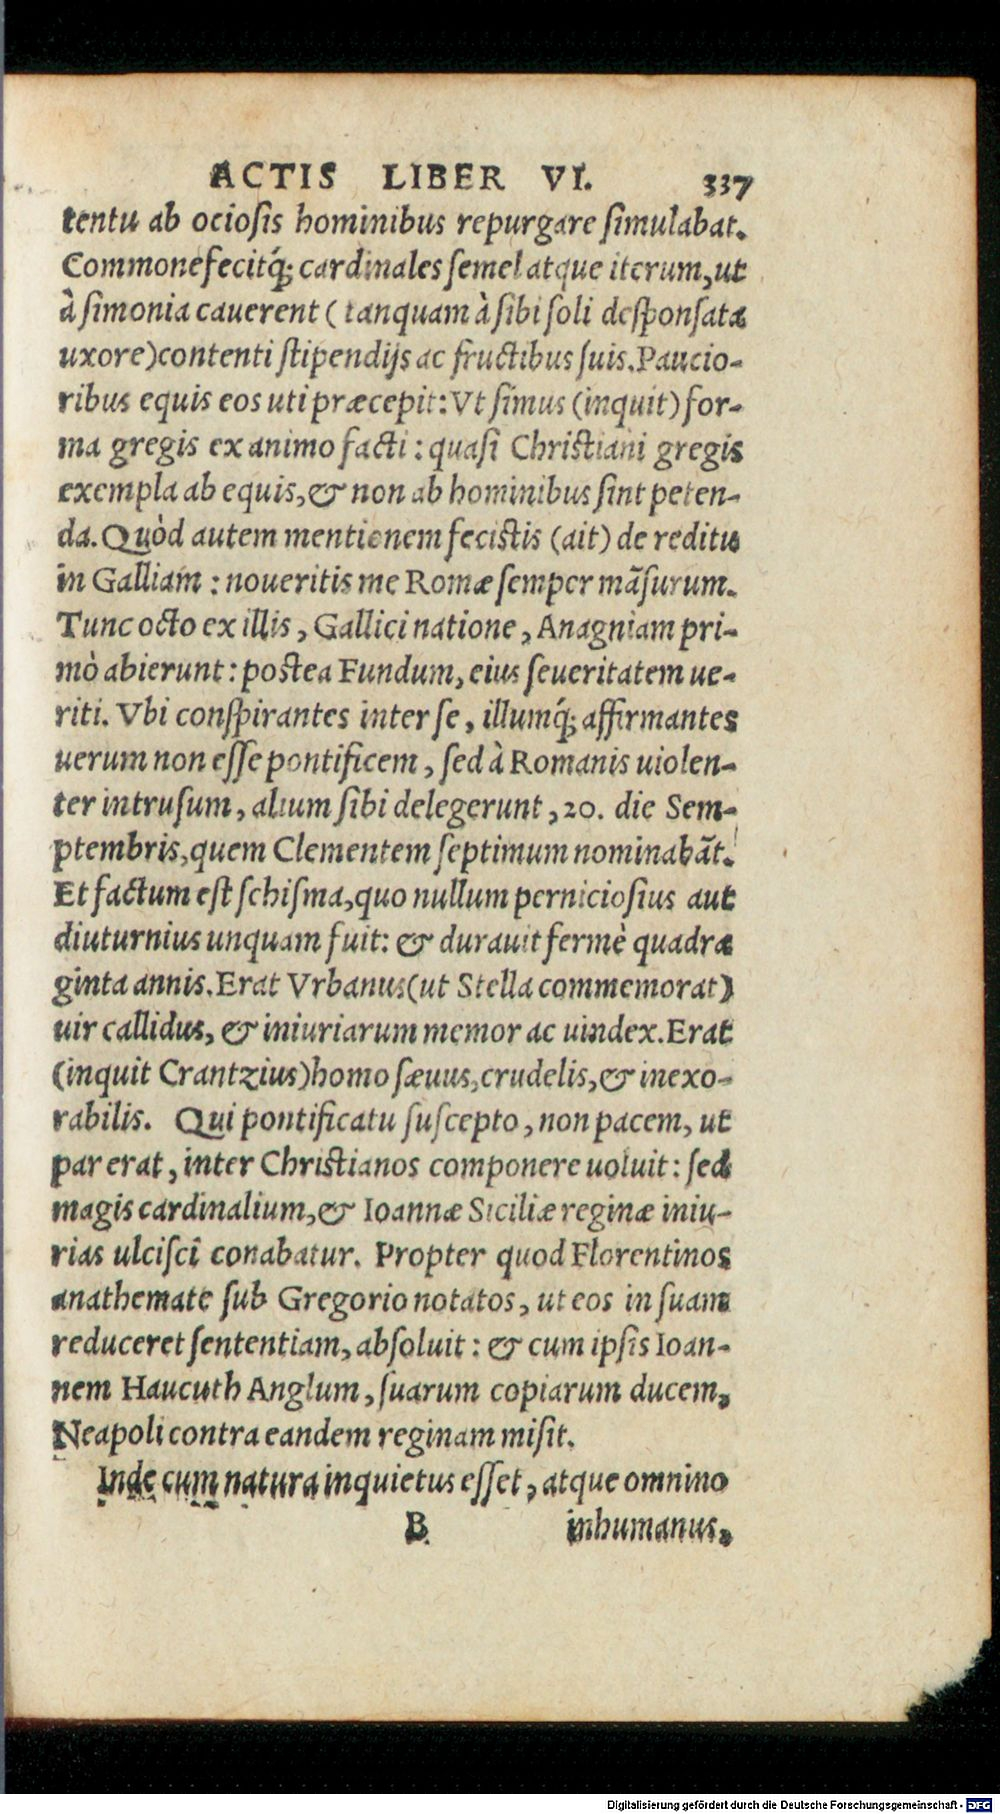 ACTIS LIBER VI. 337
tentu ab ociosis hominibus repurgare simulabat.
Commonefecitq́; cardinales semel atque iterum, ut
à simonia cauerent ( tanquam à sibi soli desponsatæ
uxore) contenti stipendijs ac fructibus suis. Paucio-
ribus equis eos uti præcepit: Vt simus (inquit) for-
ma gregis ex animo facti: quasi Christiani gregis
exempla ab equis, & non ab hominibus sint peten-
da. Quòd autem mentionem fecistis (ait) de reditu
in Galliam: noueritis me Romæ semper mãsurum.
Tunc octo ex illis, Gallici natione, Anagniam pri-
mò abierunt: postea Fundum, eius seueritatem ue-
riti. Vbi conspirantes inter se, illumq́; affirmantes
uerum non esse pontificem, sed à Romanis uiolen-
ter intrusum, alium sibi delegerunt, 20. die Sem-
ptembris, quem Clementem septimum nominabãt.
Et factum est schisma, quo nullum perniciosius aut
diuturnius unquam fuit: & durauit fermè quadra
ginta annis. Erat Vrbanus (ut Stella commemorat)
uir callidus, & iniuriarum memor ac uindex. Erat
(inquit Crantzius) homo sæuus, crudelis, & inexo-
rabilis. Qui pontificatu suscepto, non pacem, ut
par erat, inter Christianos componere uoluit: sed
magis cardinalium, & Ioannæ Siciliæ reginæ iniu-
rias ulcisci conabatur. Propter quod Florentinos
anathemate sub Gregorio notatos, ut eos in suam
reduceret sententiam, absoluit: & cum ipsis Ioan-
nem Haucuth Anglum, suarum copiarum ducem,
Neapoli contra eandem reginam misit.
Inde cum natura inquietus esset, atque omnino
B inhumanus,
Digitalisierung gefördert durch die Deutsche Forschungsgemeinschaft - DFG